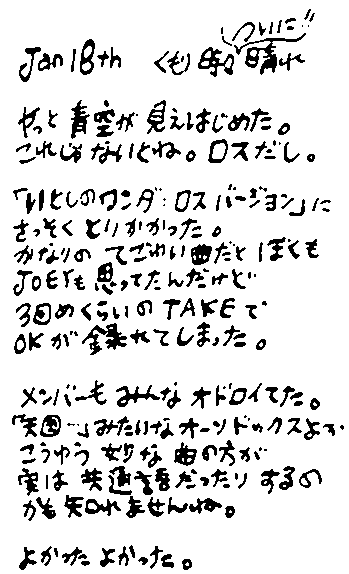 ついに!!
Jan 18th くもり時々晴れ
やっと青空が見えはじめた。
これじゃないとね。ロスだし。
「いとしのワンダ:ロスバージョン」に
さっそくとりかかった。
かなりのてごわい曲だとぼくも
JOEYも思ってたんだけど
3回めくらいのTAKEで
OKが録れてしまった。
メンバーもみんなオドロイてた。
「天国…」みたいなオーソドックスよか
こうゆう妙な曲の方が
実は共通言語だったりするの
かも知れませんね。
よかったよかった。